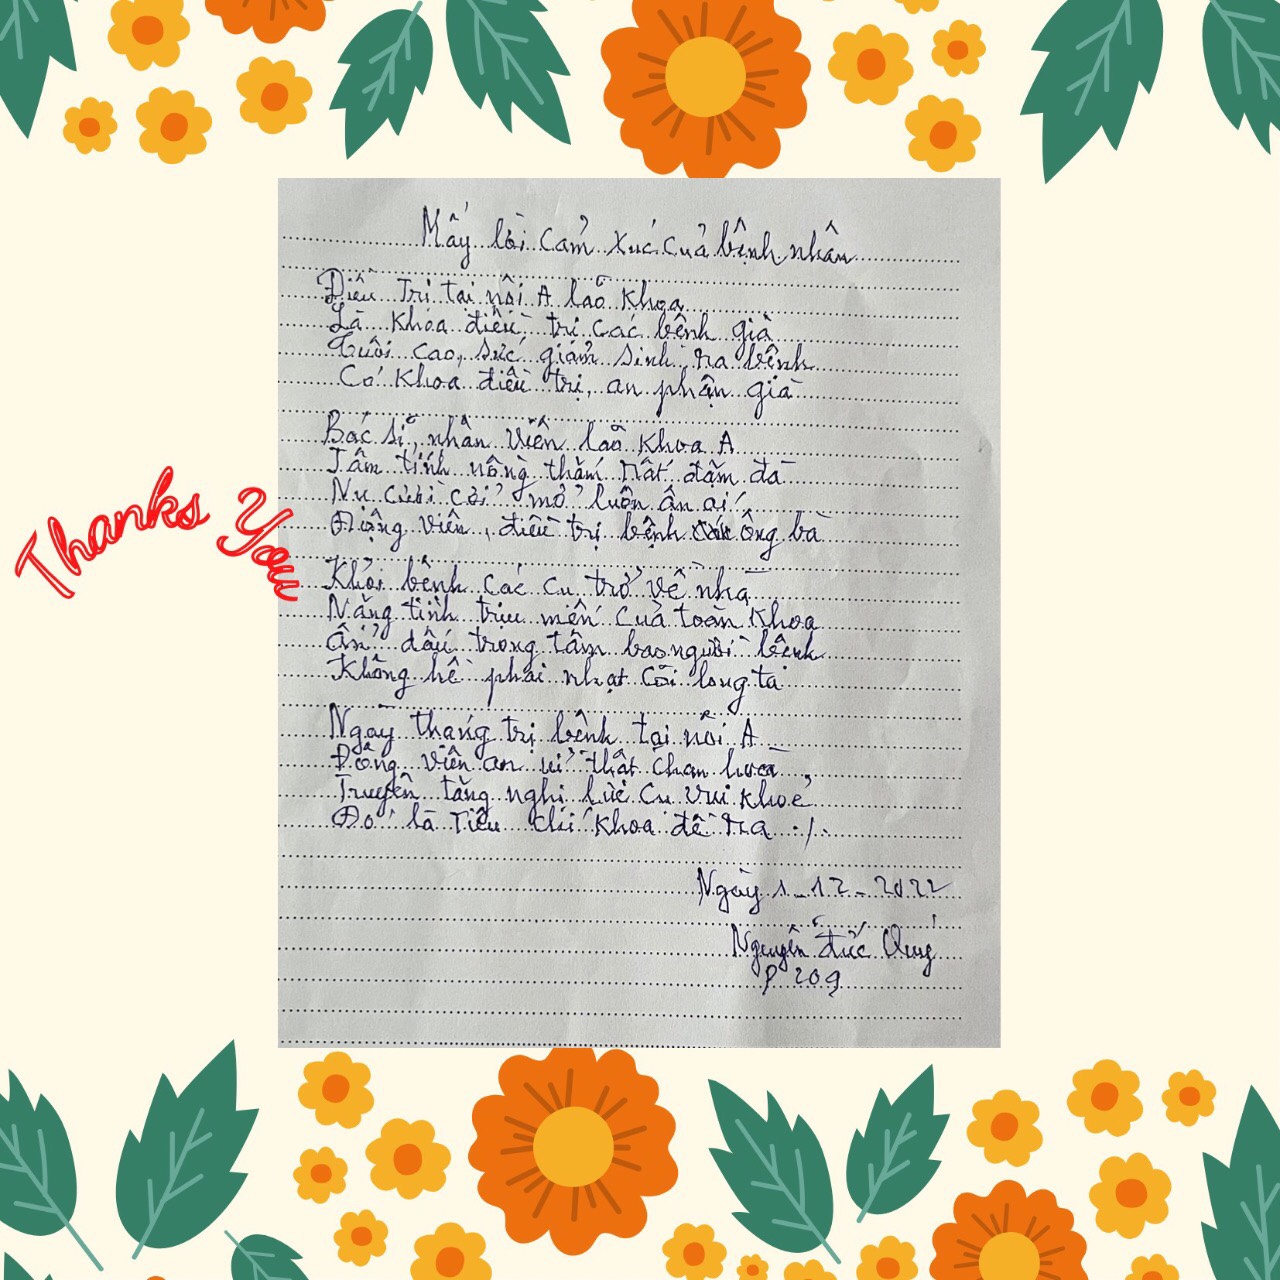 Mấy lời cảm xúc của bệnh nhân
Điều Trị tại nội A lão Khoa
Là Khoa điều trị các bệnh già
Tuổi cao, sức giảm sinh ra bệnh
Có Khoa điều trị, an phận già
Bác sĩ, nhân viên lão Khoa A
Tâm tính nồng thắm rất đậm đà
Nụ cười cởi mở luôn ân ái
Động viên, điều trị bệnh ông bà
Thanks You
Khỏi bệnh các cụ trở về nhà
Nặng tình trìu mến của toàn Khoa
Ẩn dấu trong tâm bao người bệnh
Không hề phai nhạt cõi lòng ta
Ngày tháng trị bệnh tại nội A
Động viên an ủi thật chan hoà
Truyền tăng nghị lực cụ vui khoẻ
Đó là Tiêu chí Khoa đề ra ./.
Ngày 1_12_2022
Nguyễn Đức Quý
P 209